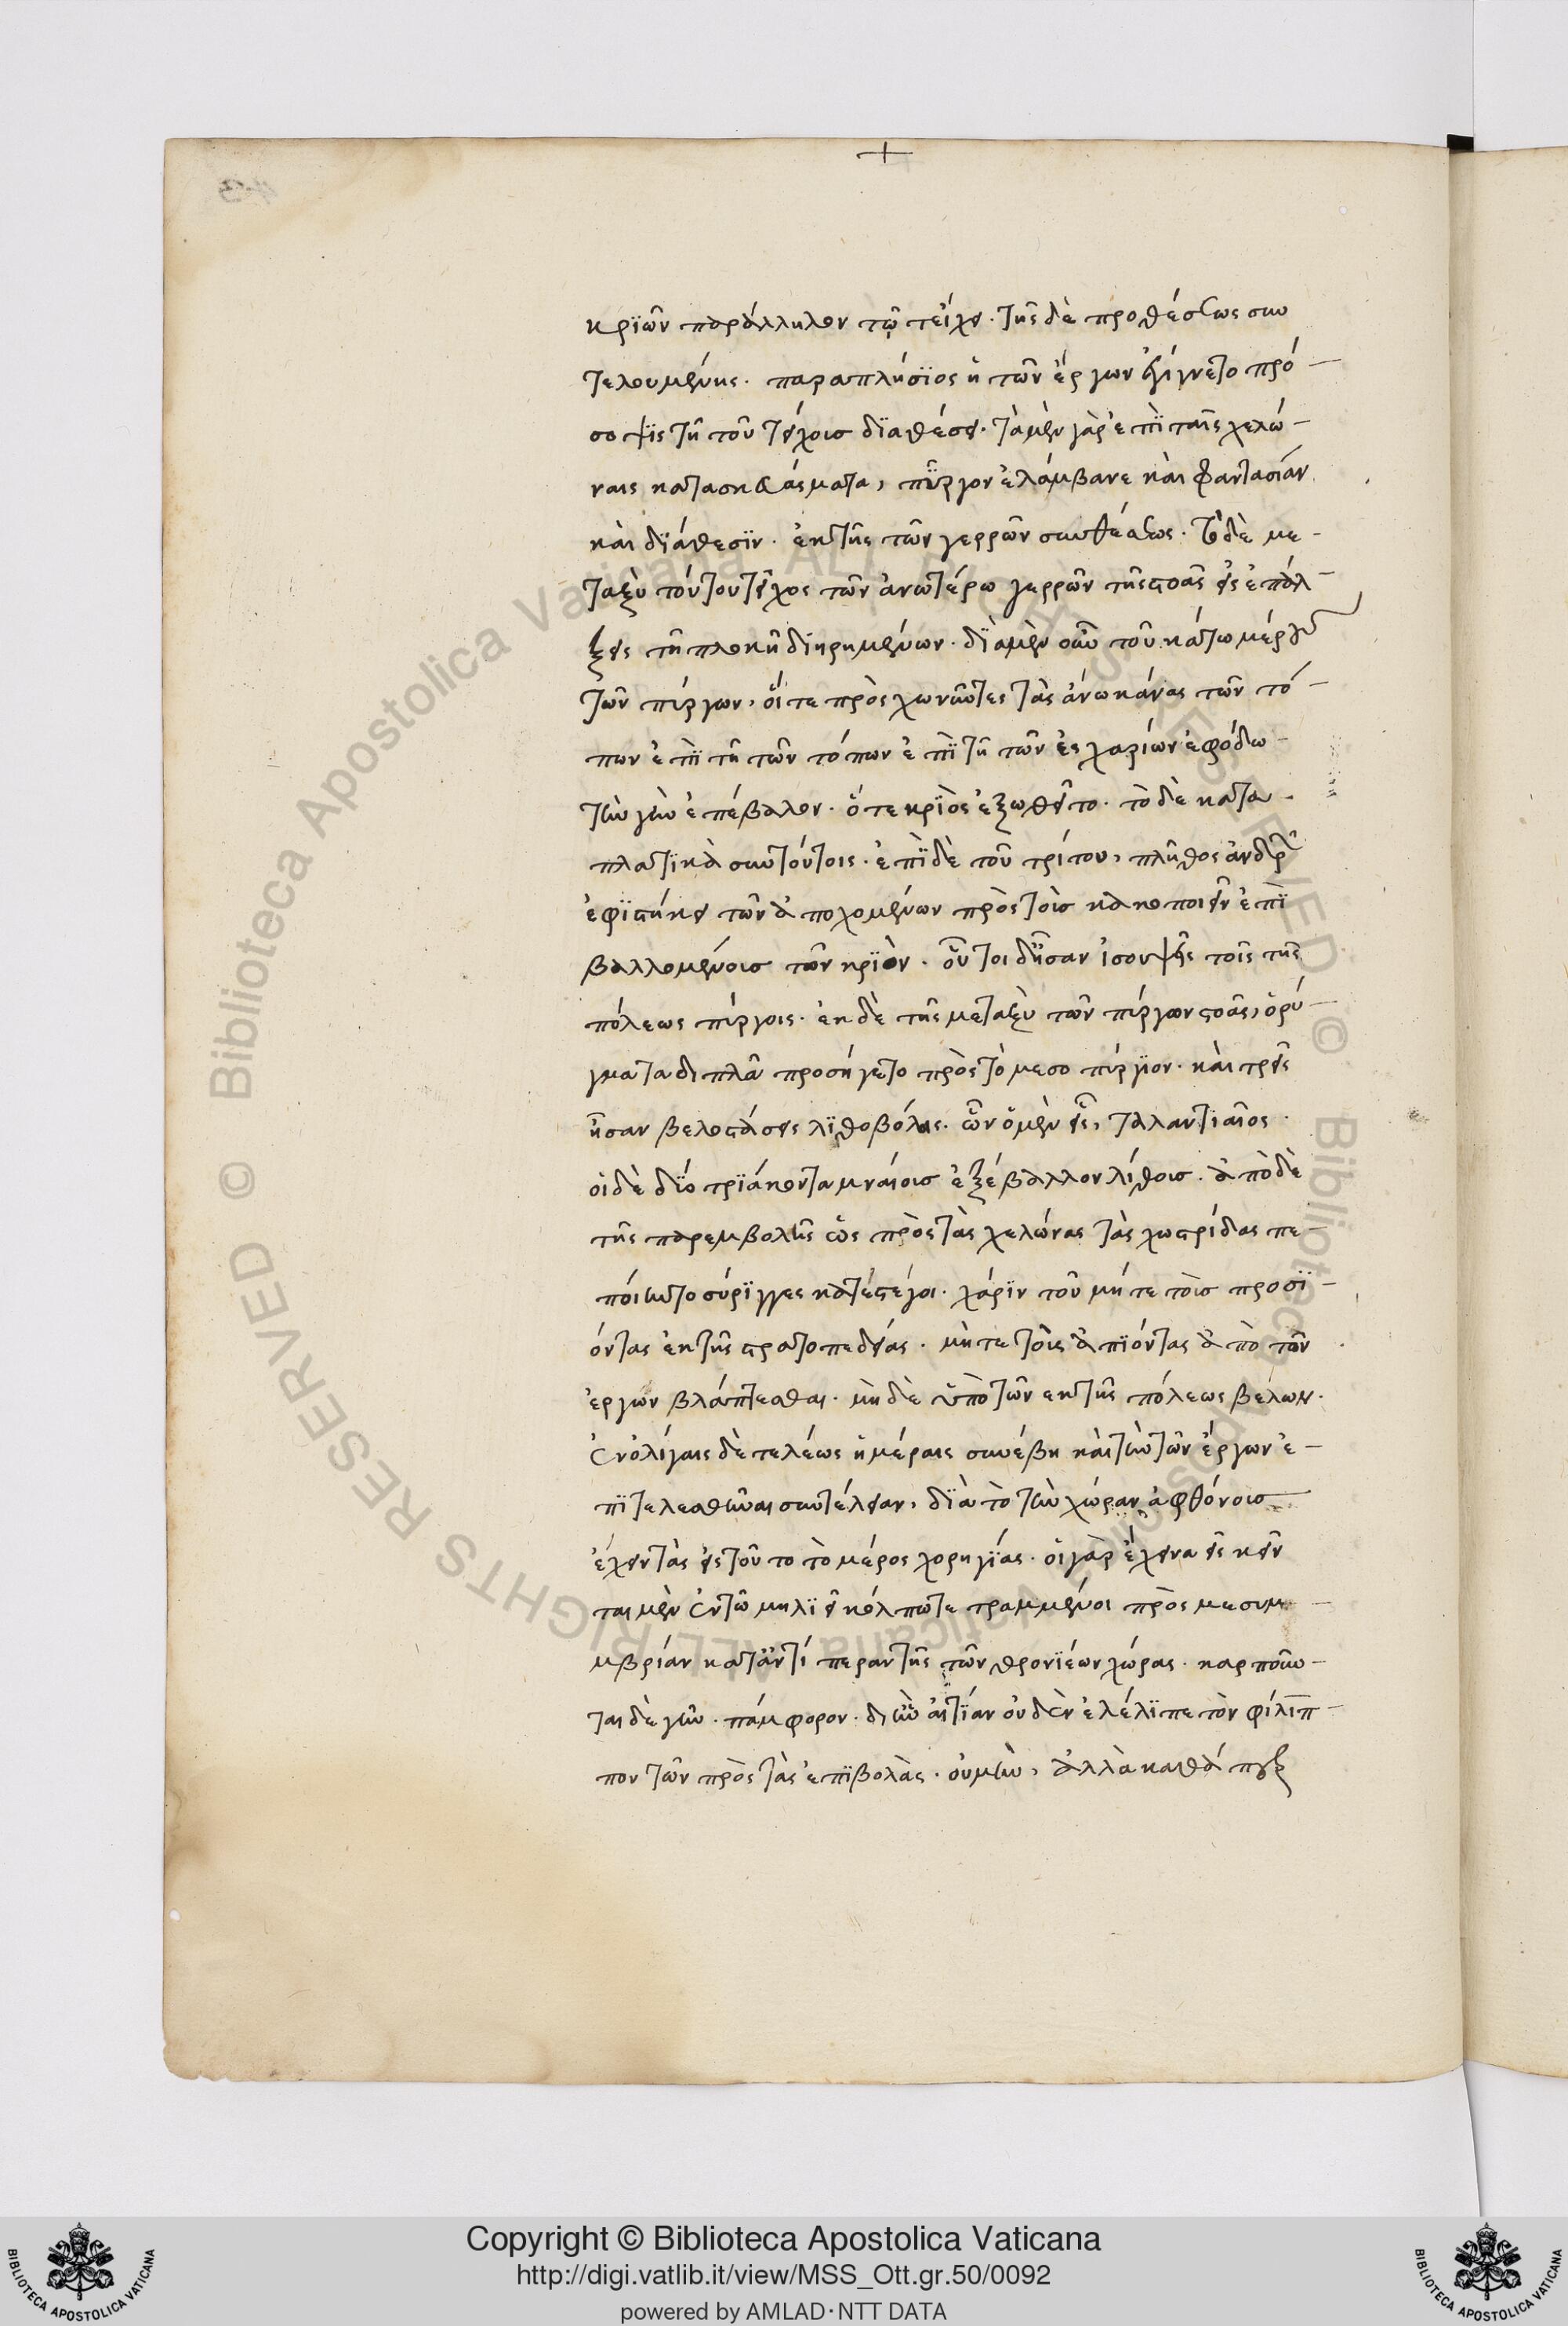 +
κριῶν παράλληλον τῷ τείχει. τῆς δὲ προθέσεως συν
τελουμένης. παραπλήσιος ἡ τῶν ἔργων ἐγίγνετο πρό-
σοψις τῇ τοῦ τείχους διαθέσει. τὰ μὲν γὰρ ἐπὶ ταῖς χελώ-
ναις κατασκευάσματα, πύργον ἐλάμβανε καὶ φαντασίαν
καὶ διάθεσιν. ἐκ τῆς τῶν γερρῶν συνθέσεως. τὸ δὲ με-
ταξὺ τούτου τεῖχος τῶν ἀνωτέρω γερρῶν τῆς στοᾶς εἰς ἐπάλ-
ξεις τῇ πλοκῇ διῃρημένων. διὰ μὲν οὖν τοῦ κάτω μέρους
τῶν πύργων, οἵ τε προσχωννύντες τὰς ἀνω τῶν τό-
πων ἐπὶ τῇ τῶν τόπων ἐπὶ τῇ τῶν ἐσχαρίων ἐφόδω-
τὴν γῆν ἐπέβαλον. ὅ τε κριὸς ἐξωθεῖτο. τὸ δὲ κατα
πλατικὰ σὺν τούτοις. ἐπὶ δὲ τοῦ τρίτου, πλῆθος ἀνδρῶν
ἐφιστήκει τῶν ἀπο χομένων πρὸς τοὺς κακοποιεῖν ἐπι
βαλλομένους τῶν κριὸν. οὗτοι δῆσαν ἰσουψεῖς τοῖς τῆς
πόλεως πύργοις. ἐκ δὲ τῆς μεταξὺ τῶν πύργων στοᾶς, ὀρύ-
γματα διπλᾶ προσήγετο πρὸς τὸ μεσοπύργιον. καὶ τρεῖς
ἦσαν βελοστάσεις λιθοβόλοις. ὧν ὁ μὲν εἷς, ταλαντιαῖος.
οἱ δὲ δύο τριάκοντα μναίους ἐξέβαλλον λίθους. ἀπὸ δὲ
τῆς παρεμβολῆς ὡς πρὸς τὰς χελώνας τὰς χωστρίδας πε-
ποίηντο σύριγγες κατέστεγοι. χάριν τοῦ μή τε τοὺς προσϊ-
όντας ἐκ τῆς στρατοπεδείας. μή τε τοὺς ἀπιόντας ἀπὸ τῶν
ἔργων βλάπτεσθαι. μηδὲ ὑπὸ τῶν ἐκ τῆς πόλεως βελῶν.
ἐν ὀλίγαις δὲ τελέως ἡμέραις συνέβη καὶ τὴν τῶν ἔργων ἐ-
πιτελεσθῆναι συντέλειαν, διὰ τὸ τὴν χώραν ἀφθόνους
ἔχειν τὰς εἰς τοῦτο τὸ μέρος χορηγίας. οἱ γὰρ ἐχεινα εἷς κειν
ται μὲν ἐν τῷ μηλιεῖ κόλπω τετραμμένοι πρὸς μεσυμ-
μβρίαν κατἀντί περαν τῆς τῶν θρονιέων χώρας. καρποῦν-
ται δὲ γῆν. πάμφορον. διἣν αἰτίαν οὐδὲν ἐλέλιπε τὸν φίλιπ-
πον τῶν πρὸς τὰς ἐπιβολάς. οὐμὴν, ἀλλὰ καθάπερ